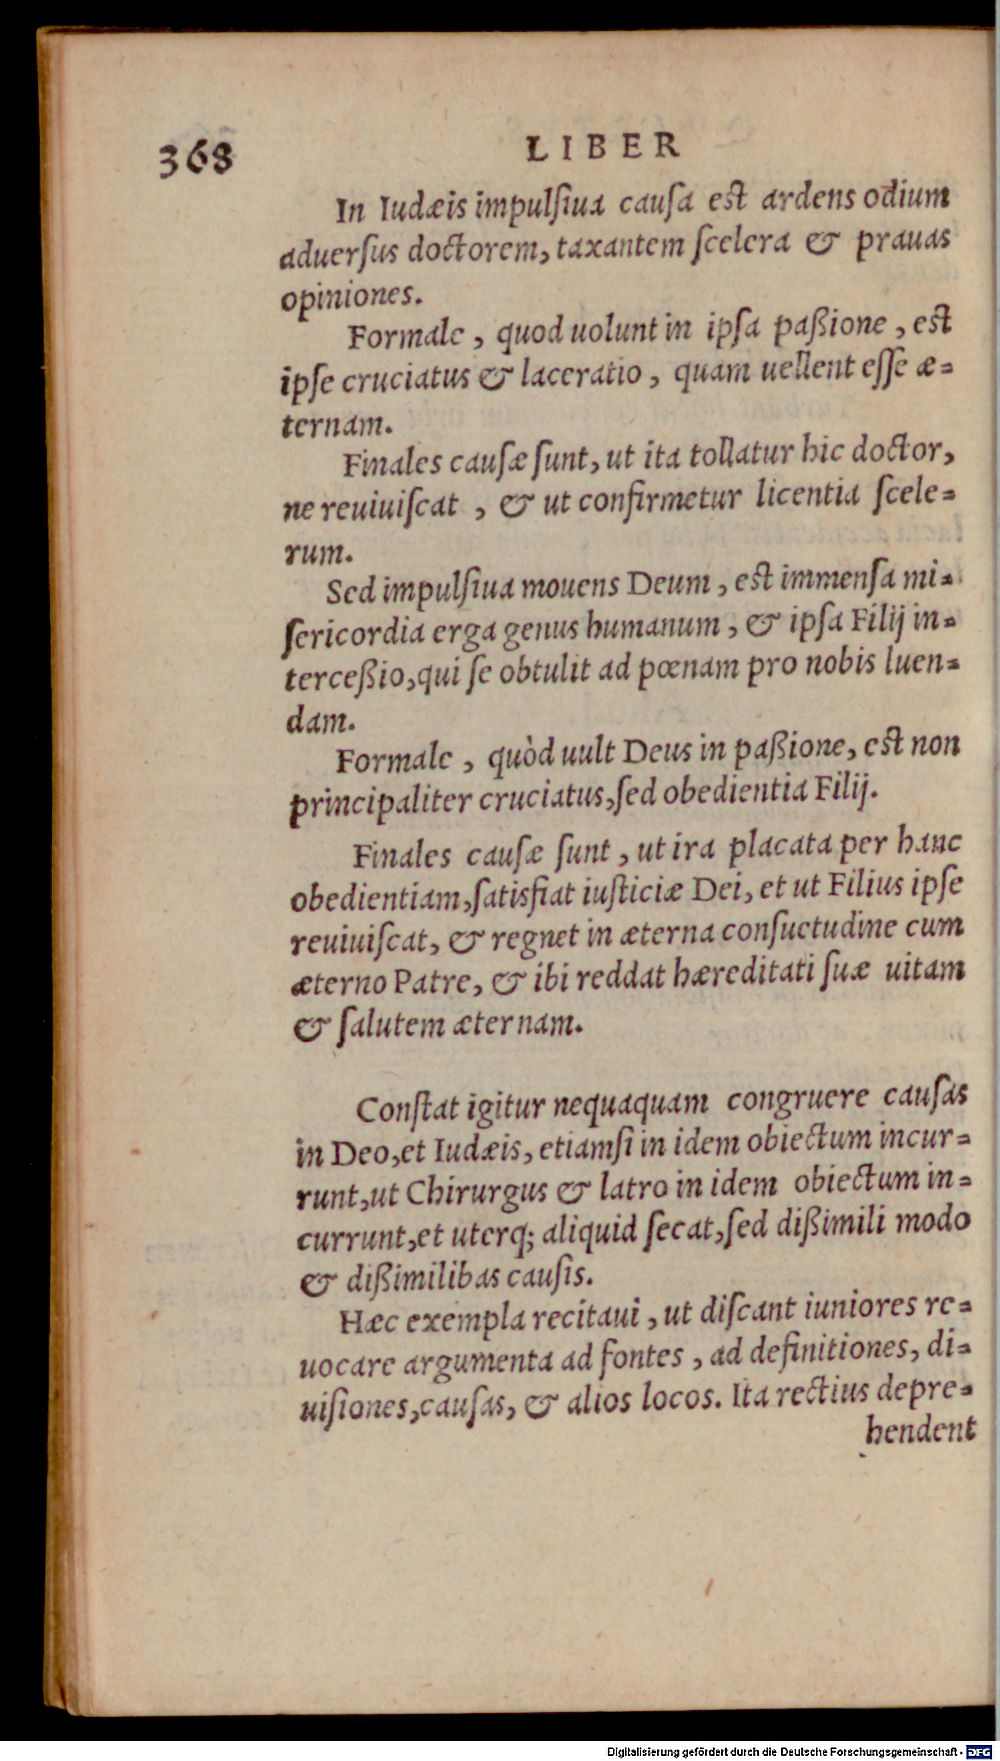 368
LIBER
In Iudæis impulſiua cauſa est ardens odium
aduerſus doctorem, taxantem ſcelera & prauas
opiniones.
Formale, quod uolunt in ipſa paßione, est
ipſe cruciatus & laceratio, quam uellent eſſe æ-
ternam.
Finales cauſæ ſunt, ut ita tollatur hic doctor,
ne reuiuiſcat, & ut confirmetur licentia ſcele-
rum.
Sed impulſiua mouens Deum, est immenſa mi-
ſericordia erga genus humanum, & ipſa Filij in-
terceßio, qui ſe obtulit ad pœnam pro nobis luen-
dam.
Formale, quòd uult Deus in paßione, est non
principaliter cruciatus, ſed obedientia Filij.
Finales cauſæ ſunt, ut ira placata per hanc
obedientiam, ſatisfiat iuſticiæ Dei, et ut Filius ipſe
reuiuiſcat, & regnet in æterna conſuetudine cum
æterno Patre, & ibi reddat hæreditati ſuæ uitam
& ſalutem æternam.
Conſtat igitur nequaquam congruere cauſas
in Deo, et Iudæis, etiamſi in idem obiectum incur-
runt, ut Chirurgus & latro in idem obiectum in-
currunt, et uterq; aliquid ſecat, ſed dißimili modo
& dißimilibas cauſis.
Hæc exempla recitaui, ut diſcant iuniores re-
uocare argumenta ad fontes, ad definitiones, di-
uiſiones, cauſas, & alios locos. Ita rectius depre-
hendent
Digitalisierung gefördert durch die Deutsche Forschungsgemeinschaft - DFG